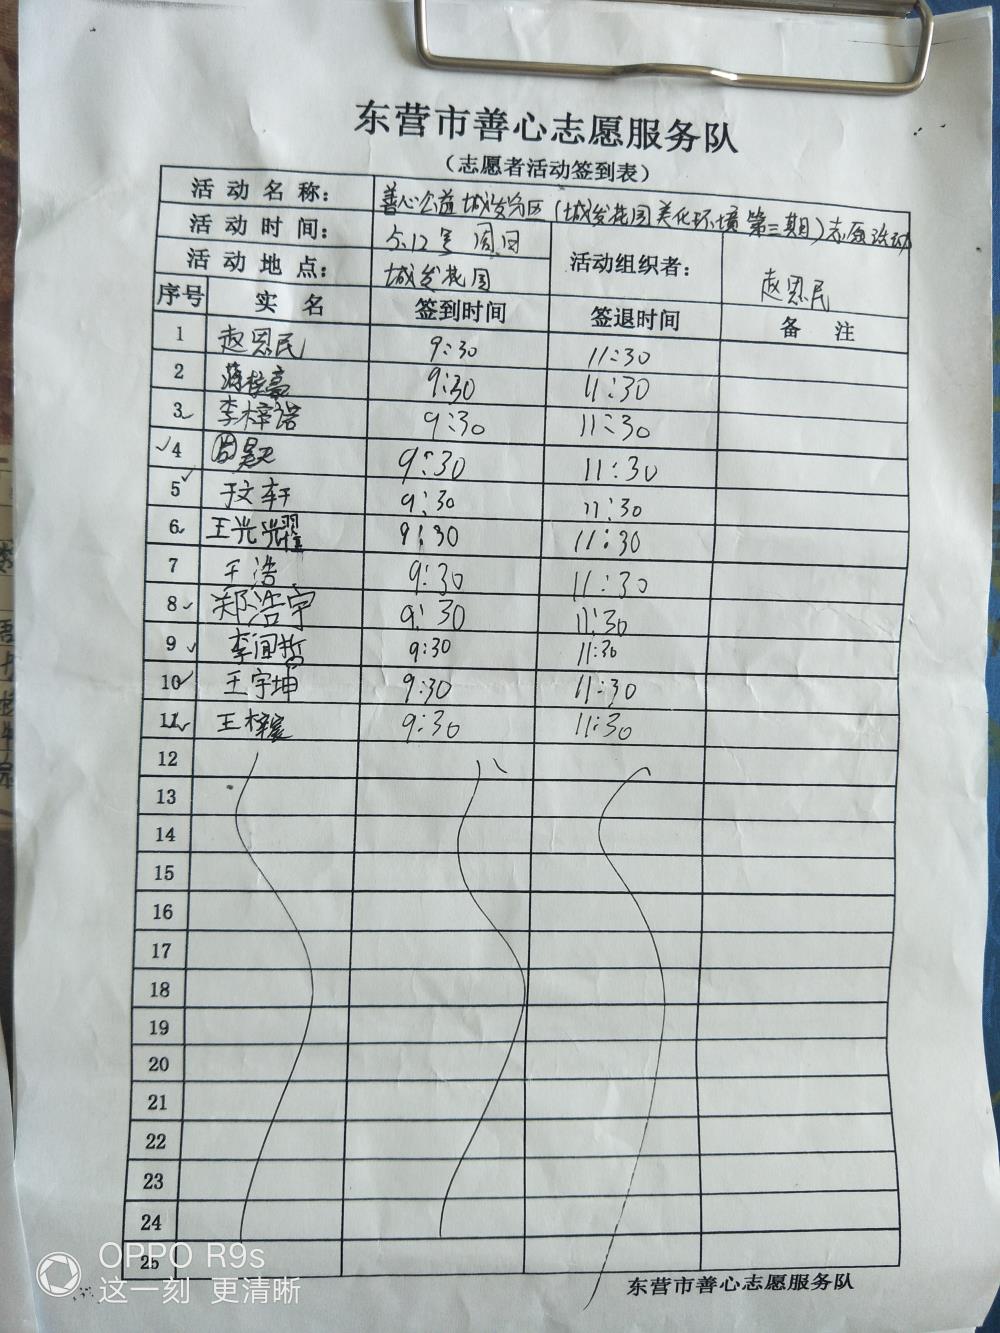 东营市善心志愿服务队
（志愿者活动签到表）
活动名称： 善心公益城发分区（城发花园美化环境第三期）志愿活动
活动时间： 5.12号 周日 活动组织者： 赵恩民
活动地点： 城发花园
序号 实名 签到时间 签退时间 备注
1 赵恩民 9:30 11:30
2 9:30 11:30
3 李梓诺 9:30 11:30
4 周昊天 9:30 11:30
5 于文轩 9:30 11:30
6 王光耀 9:30 11:30
7 王浩 9:30 11:30
8 郑浩宇 9:30 11:30
9 李闻哲 9:30 11:30
10 王宇坤 9:30 11:30
11 王梓宸 9:30 11:30
12
13
14
15
16
17
18
19
20
21
22
23
24
25
东营市善心志愿服务队
OPPO R9s
这一刻 更清晰